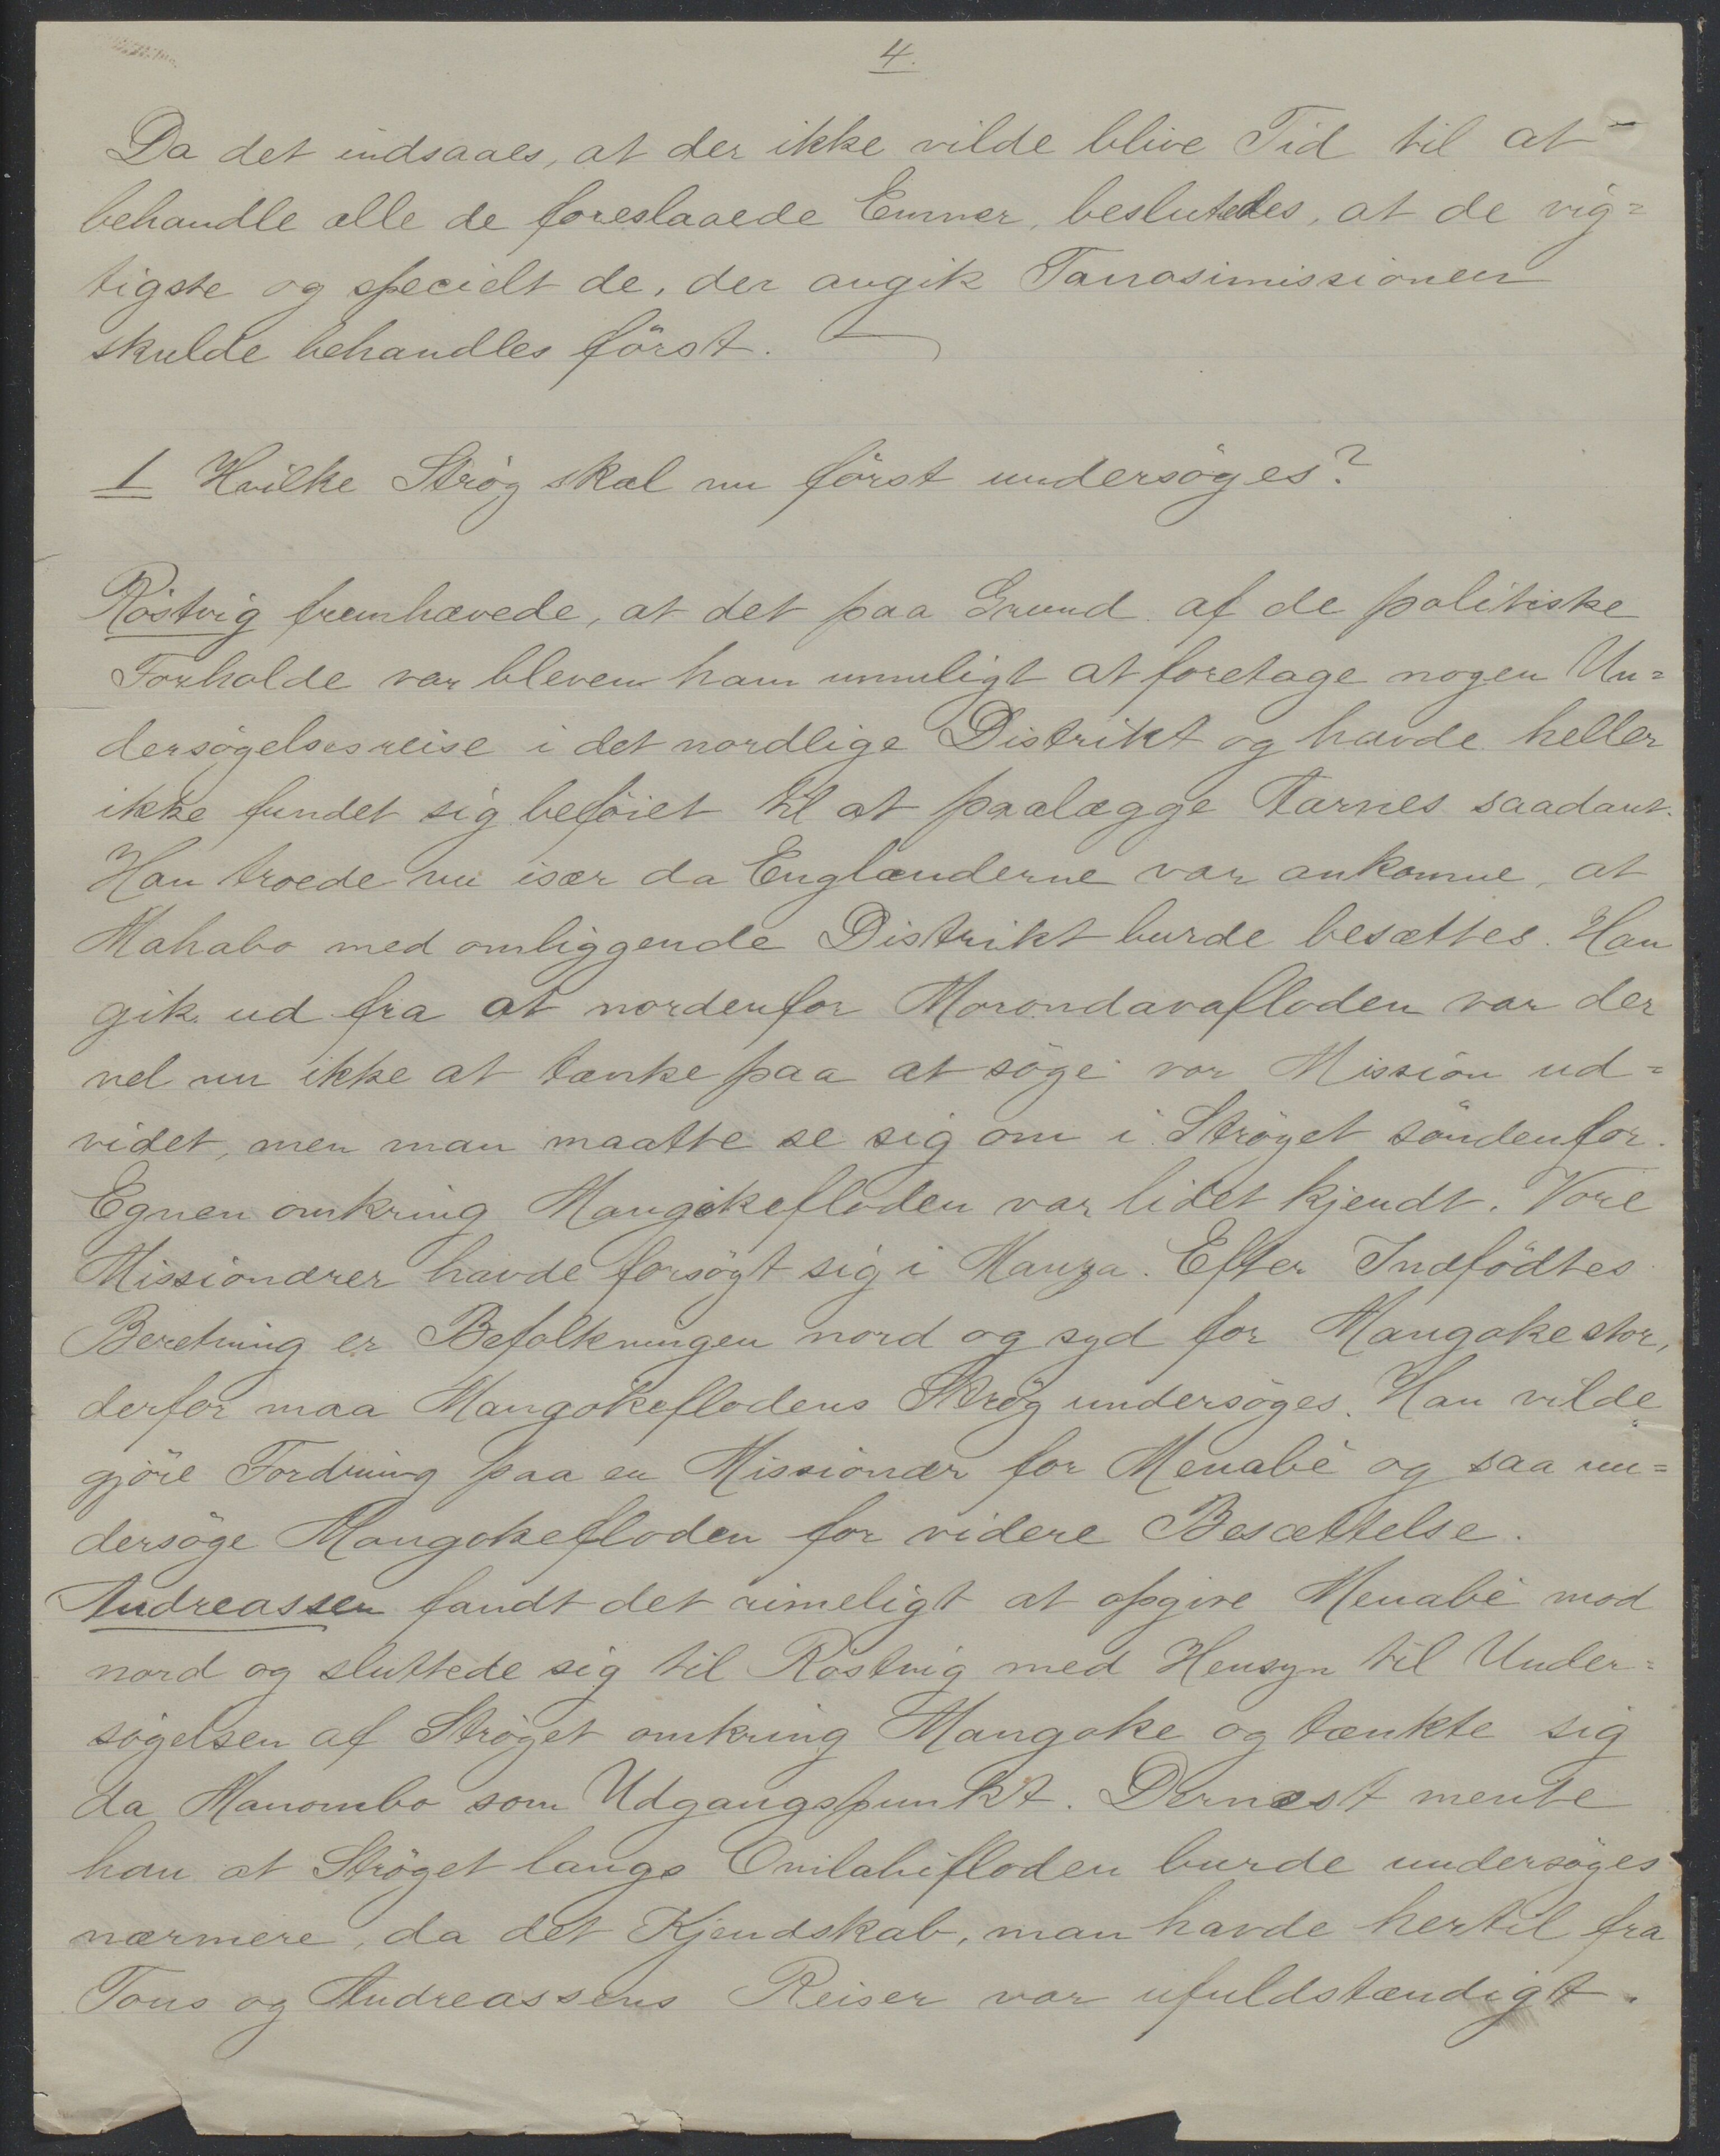 4.
Da det indsaaes, at der ikke vilde blive Tid til at
behandle alle de foreslaaede Emner, besluttedes, at de vig=
tigste og specielt de, der angik Tanosimissionen
skulde behandles först.
1 Hvilke Strøg skal nu först undersöges?
Röstvig fremhævede, at det paa Grund af de politiske
Forholde var bleven ham umuligt at foretage nogen Un=
dersögelsesreise i det nordlige Distrikt og havde heller
ikke fundet sig beföiet til at paalægge Aarnes saadant.
Han troede nu især da Englænderne var ankomne, at
Mahabo med omliggende Distrikt burde besættes. Han
gik ud fra at nordenfor Morondavafloden var der
vel nu ikke at tænke paa at söge vor Mission ud=
videt, men man maatte se sig om i Ströget söndenfor.
Egnen omkring Mangokefloden var lidet kjendt. Vore
Missionærer havde forsögt sig i Manza. Efter Indfödtes
Beretning er Befolkningen nord og syd for Mangoke stor,
derfor maa Mangokeflodens Strög undersöges. Han vilde
gjöre Fordring paa en Missionær for Menabè og saa un=
dersöge Mangokefloden for videre Besættelse.
Andreassen fandt det rimeligt at opgive Menabè mod
nord og sluttede sig til Röstvig med Hensyn til Under=
sögelsen af Ströget omkring Mangoke og tænkte sig
da Manombo som Udgangspunkt. Dernæst mente
han at Ströget langs Onilahifloden burde undersöges
nærmere, da det Kjendskab, man havde hertil fra
Tous og Andreassens Reiser var ufuldstændigt.